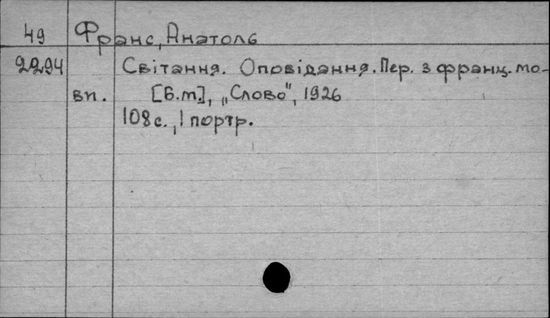 49 Франс, Анатоль
2294 Світання. Оповідання. Пер. з франц. мо-
вп. [б.т.], „Слово", 1926
108 с., 1 портр.